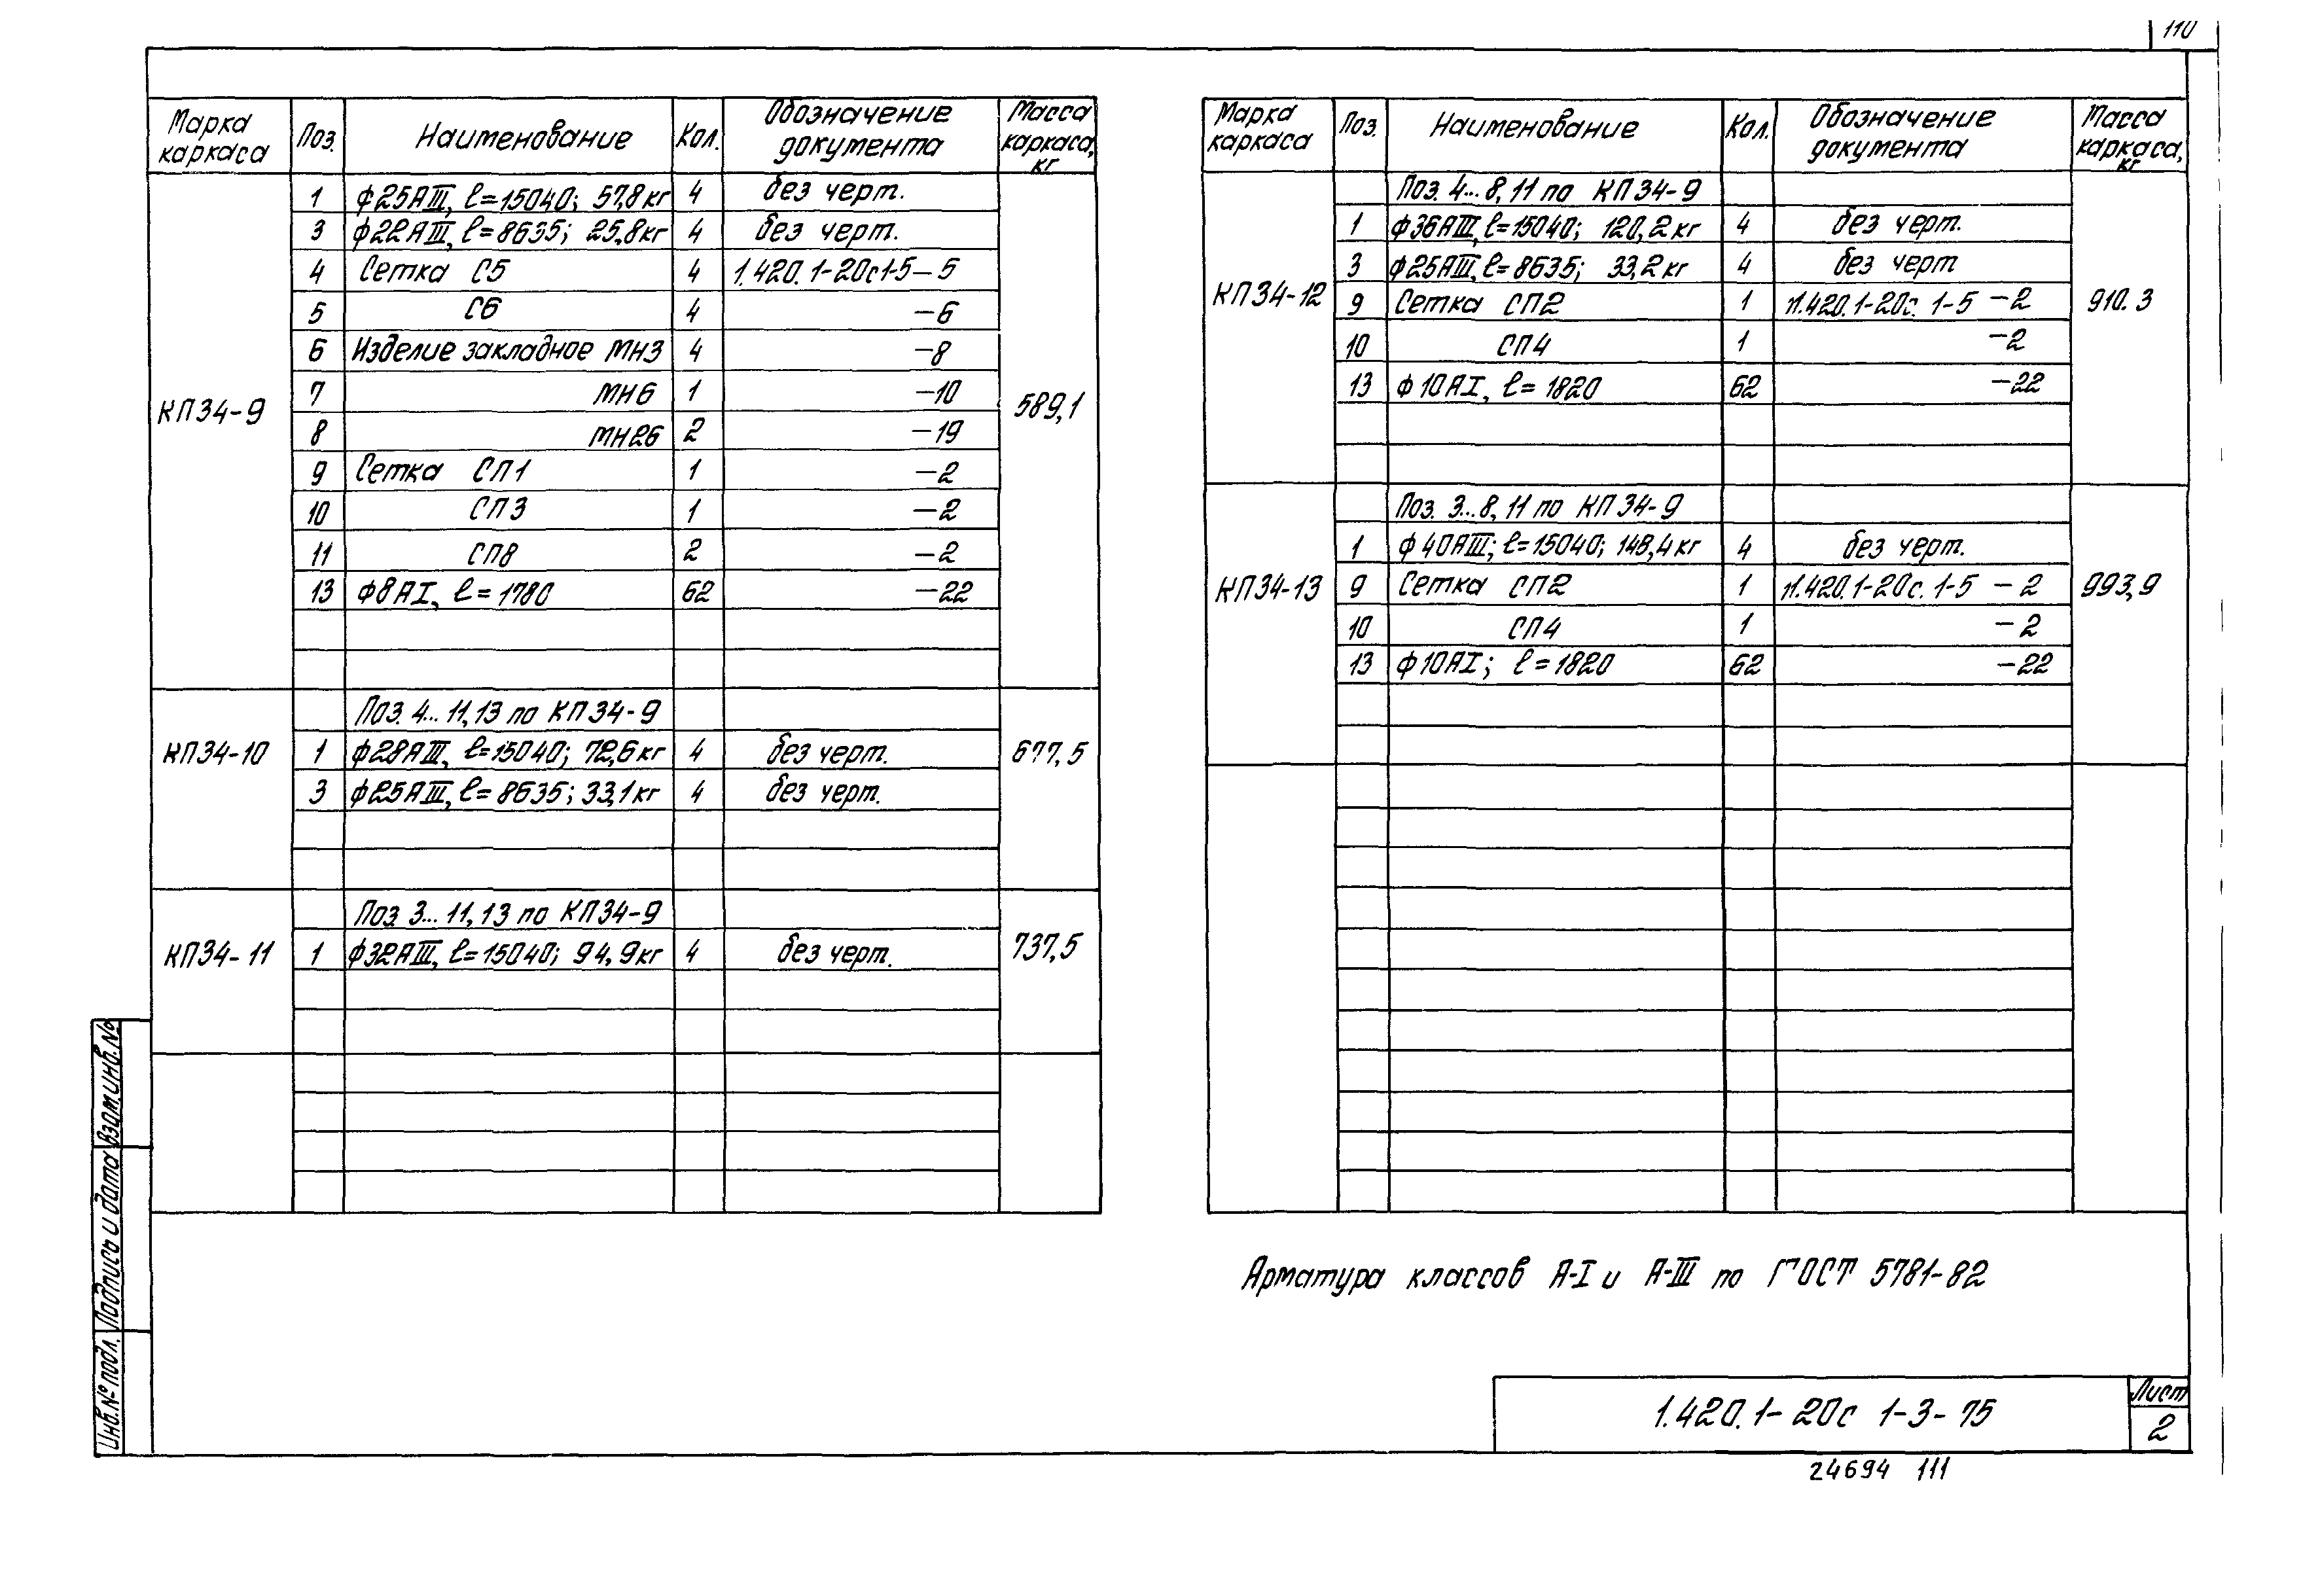 110
Марка каркаса Поз. Наименование Кол. Обозначение документа Масса каркаса, кг
КП34-9 589,1
1 ф25АIII, ℓ=15040; 57,8кг 4 без черт.
3 ф22АIII, ℓ=8635; 25,8кг 4 без черт.
4 Сетка С5 4 1.420.1-20с1-5-5
5 С6 4 -6
6 Изделие закладное МН3 4 -8
7 МН6 1 -10
8 МН26 2 -19
9 Сетка СП1 1 -2
10 СП3 1 -2
11 СП8 2 -2
13 ф8АI, ℓ=1780 62 -22
Поз. 4... 11,13 по КП34-9
КП34-10 1 ф28АIII, ℓ=15040; 72,6кг 4 без черт. 677,5
3 ф25АIII, ℓ=8635; 33,1кг 4 без черт.
Поз. 3... 11,13 по КП34-9
КП34-11 1 ф32АIII, ℓ=15040; 94,9кг 4 без черт. 737,5
Марка каркаса Поз. Наименование Кол. Обозначение документа Масса каркаса, кг
Поз. 4... 8, 11 по КП34-9
1 ф36АIII, ℓ=15040; 120,2кг 4 без черт.
3 ф25АIII, ℓ=8635; 33,2кг 4 без черт
КП34-12 9 Сетка СП2 1 1.420.1-20с. 1-5 -2 910.3
10 СП4 1 -2
13 ф10АI, ℓ=1820 62 -22
Поз. 3...8, 11 по КП34-9
1 ф40АIII; ℓ=15040; 148,4кг 4 без черт.
КП34-13 9 Сетка СП2 1 1.420.1-20с. 1-5 -2 993,9
10 СП4 1 -2
13 ф10АI; ℓ=1820 62 -22
Арматура классов А-I и А-III по ГОСТ 5781-82
Взам.инв.№
Подпись и дата
Инв.№ подл.
1.420.1-20с 1-3-75
Лист
2
24694 111